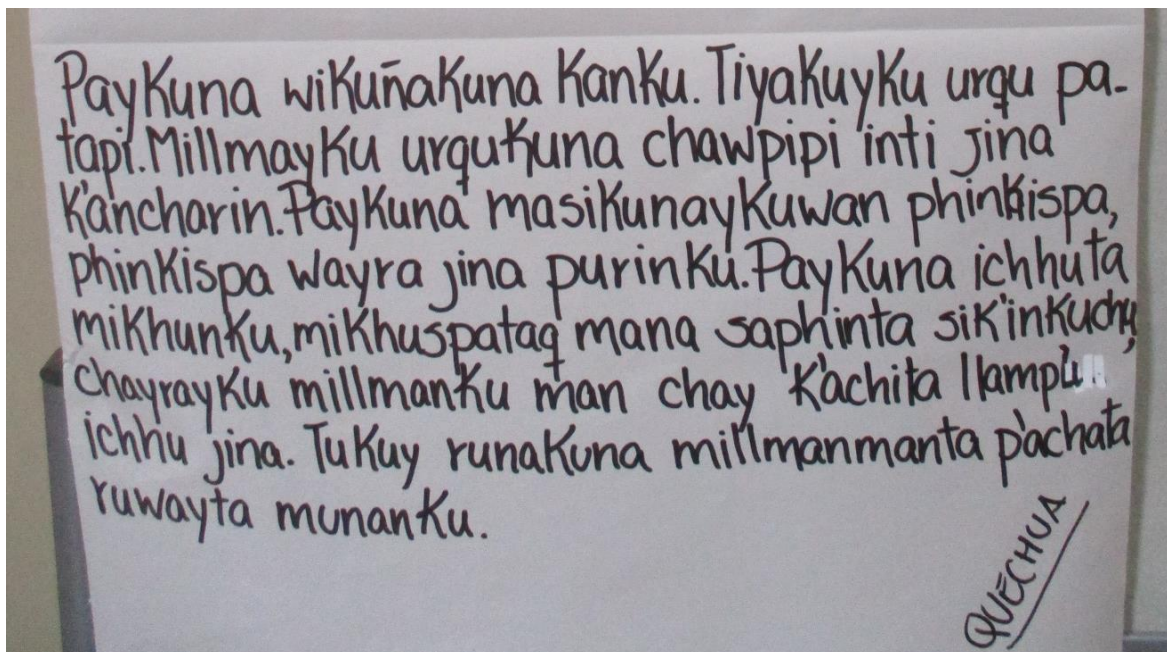 Paykuna wikuñakuna kanku. Tiyakuyku urqu pa-
tapi. Millmayku urqukuna chawpipi inti jina
k'ancharin. Paykuna masikunaykuwan phinkispa,
phinkispa wayra jina purinku. Paykuna ichhuta
mikhunku, mikhuspataq mana saphinta sik'inkuchu,
chayrayku millmanku man chay k'achita llamp'u
ichhu jina. Tukuy runakuna millmanmanta p'achata
ruwayta munanku.
QUÉCHUA